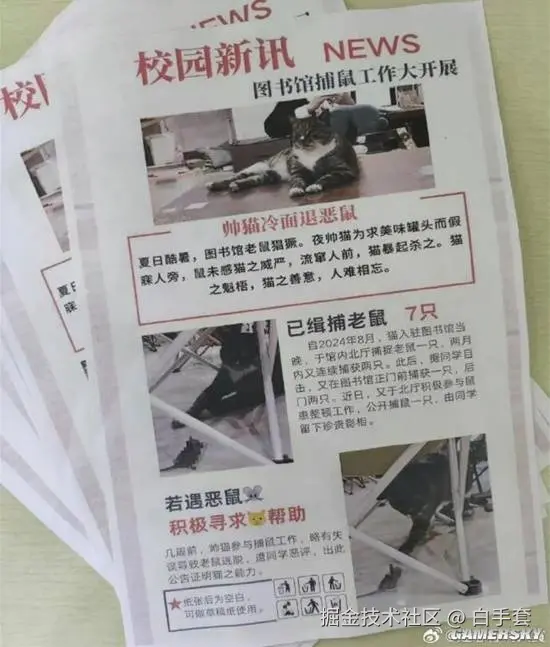 NEWS
校园新讯 NEWS
图书馆捕鼠工作大开展
校
帅猫冷面退恶鼠
夏日酷暑，图书馆老鼠猖獗。夜帅猫为求美味罐头而假
寐人旁，鼠未感猫之威严，流窜人前，猫暴起杀之。猫
之魁梧，猫之善意，人难相忘。
夏日
寐人
已缉捕老鼠 7只
自2024年8月，猫入驻图书馆当
晚，于馆内北厅捕捉老鼠一只，两月
内又连续捕获两只。此后，据同学目
击，又在图书馆正门前捕获一只，后
门两只。近日，又于北厅积极参与鼠
患整顿工作，公开捕鼠一只，由同学
留下珍贵影相。
若遇恶鼠🐭
积极寻求🐱帮助
几周前，帅猫参与捕鼠工作，略有失
误导致老鼠逃脱，遭同学恶评，出此
公告证明猫之能力。
★纸张后为空白，
可做草稿纸使用。
掘金技术社区 @ 白手套
GAMERSKY